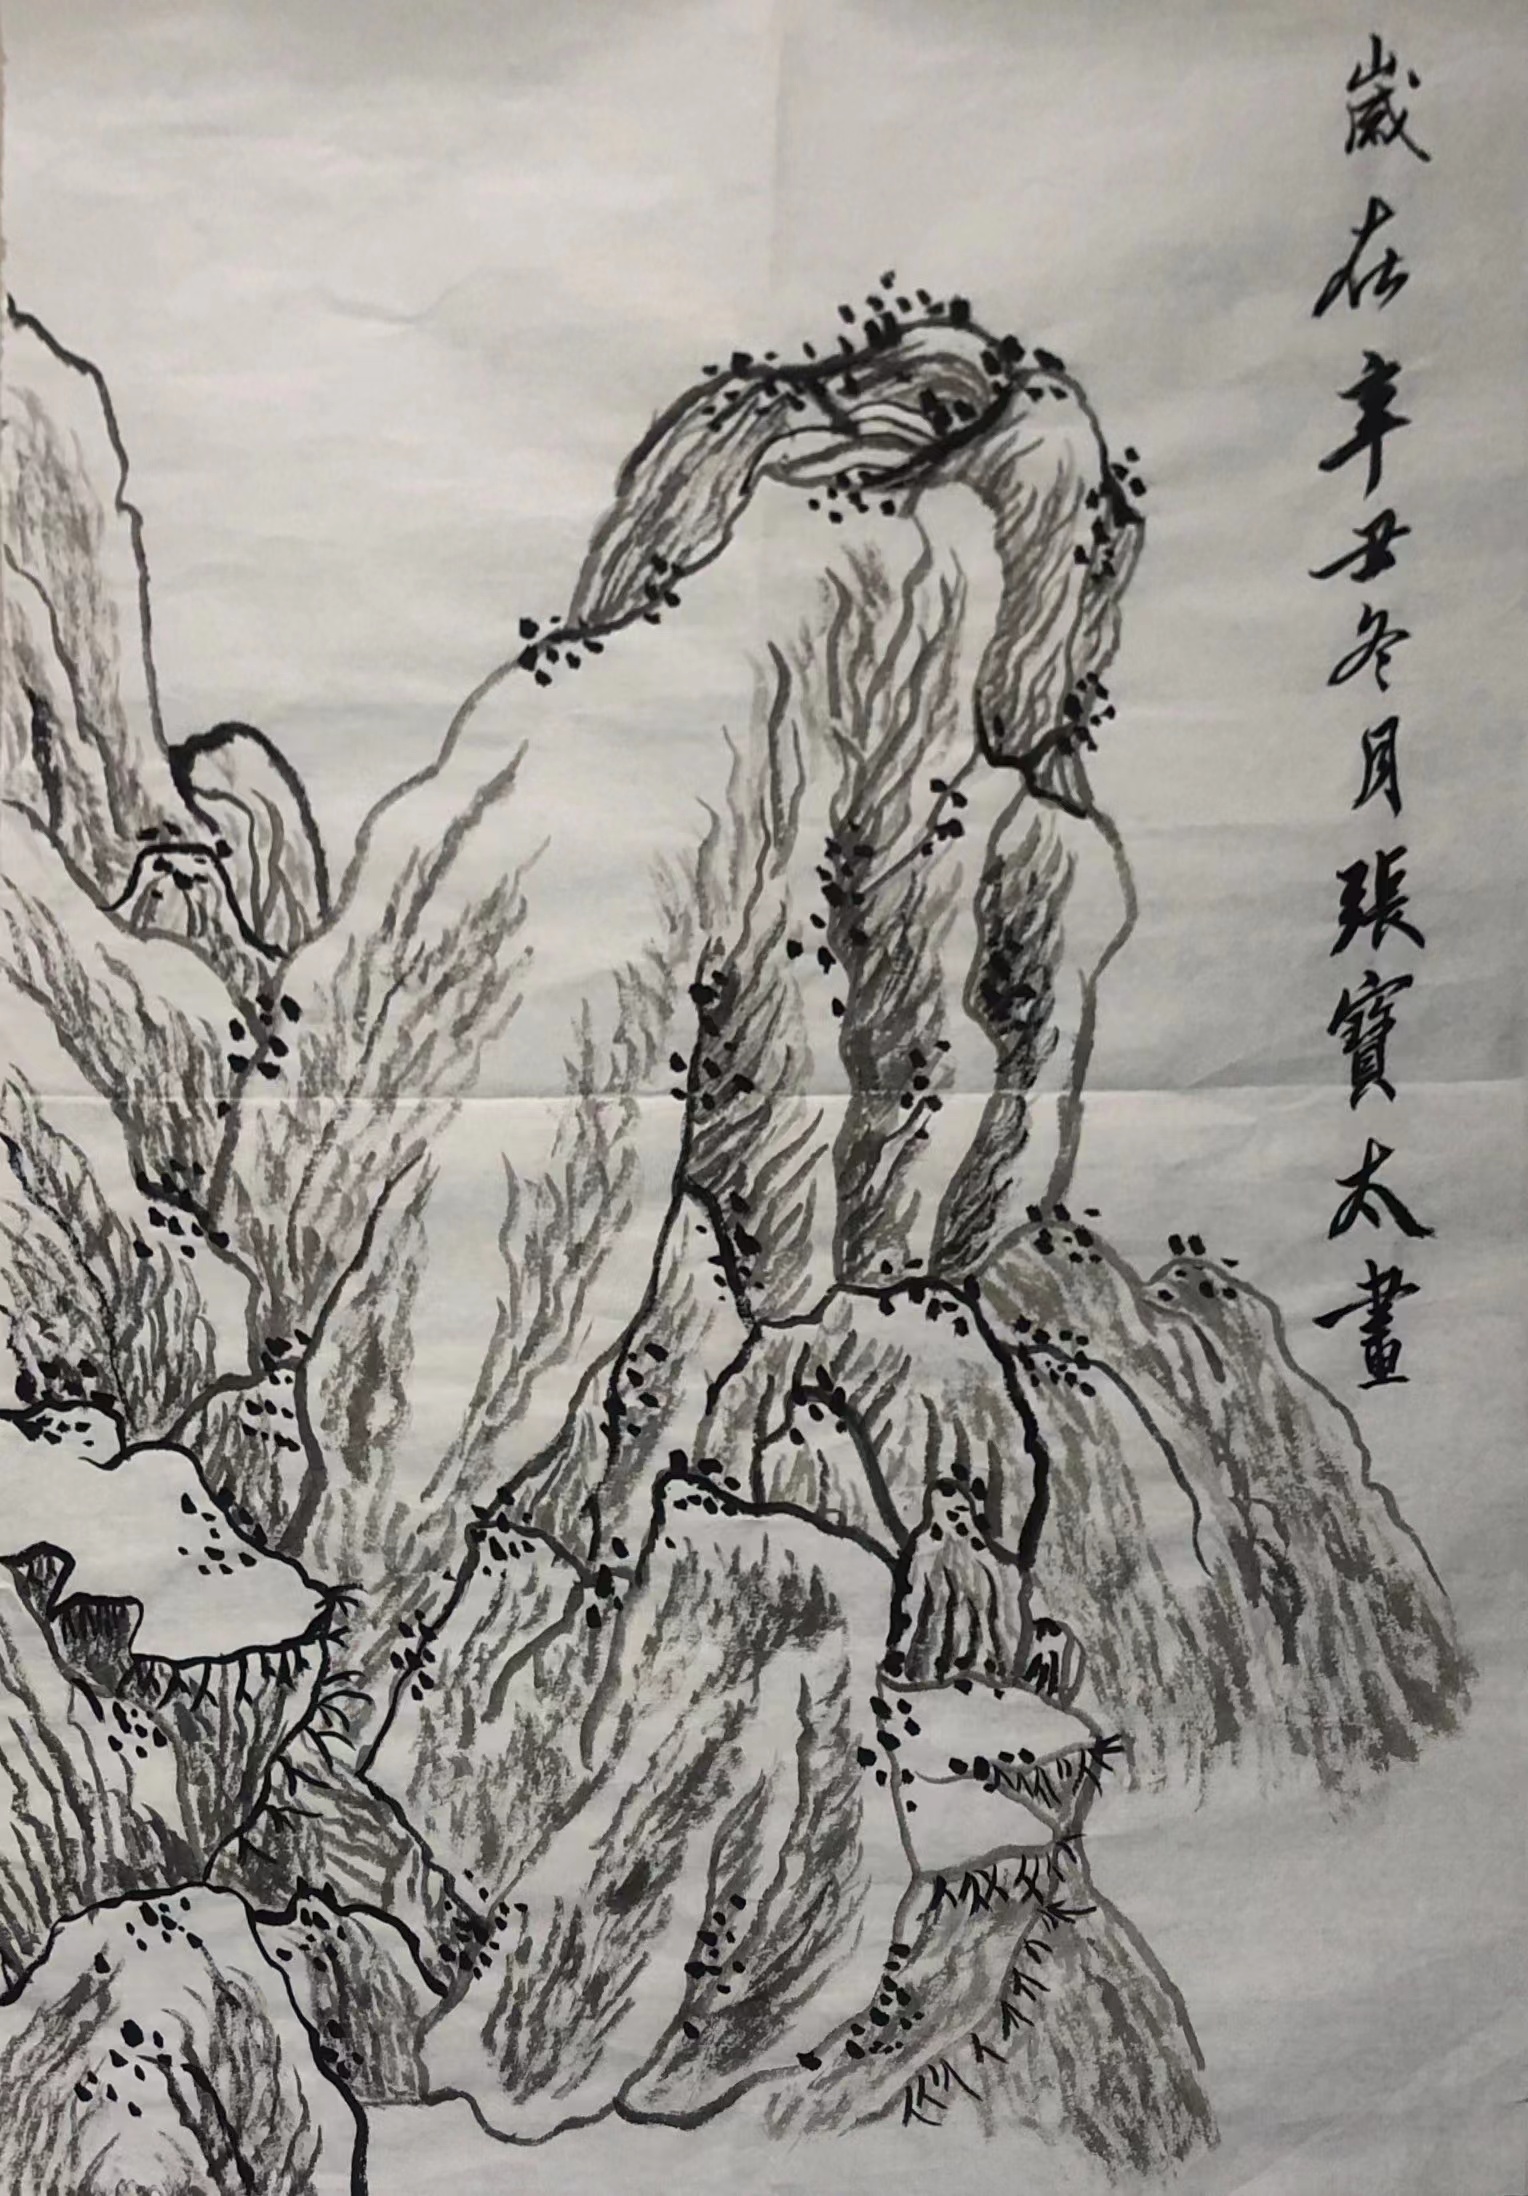 歲在辛丑冬月張寶太畫